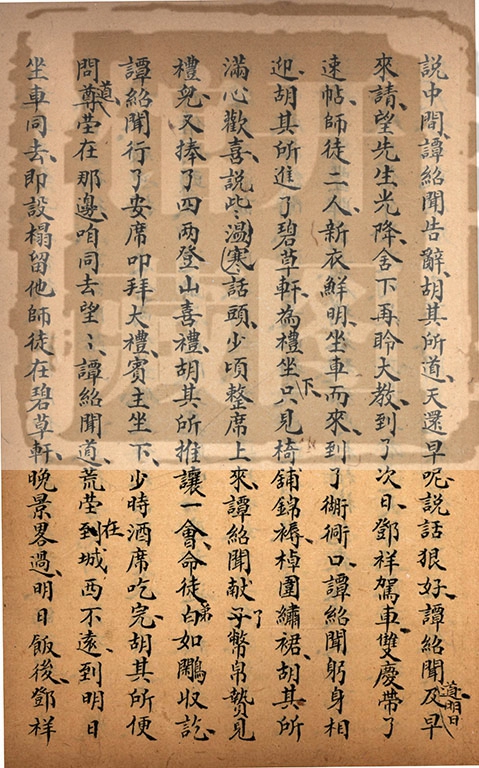 說中間譚紹聞告辭胡其所道天還早呢說話狠好譚紹聞道明日及早
來請望先生光降舍下再聆大教到了次日鄧祥駕車雙慶帶了
速帖師徒二人新衣鮮明坐車而來到了衚衕口譚紹聞躬身相
迎胡其所進了碧草軒為禮坐下只見椅舖錦褥棹圍繡裙胡其所
滿心歡喜說些溫寒話頭少頃整席上來譚紹聞獻了幣帛贄見
禮兒又捧了四兩登山喜禮胡其所推讓一會命徒弟白如鷴收訖
譚紹聞行了安席叩拜大禮賓主坐下少時酒席吃完胡其所便
問道尊塋在那邊咱同去望〻譚紹聞道荒塋在城西不遠到明日
坐車同去即設榻留他師徒在碧草軒晚景畧過明日飯後鄧祥